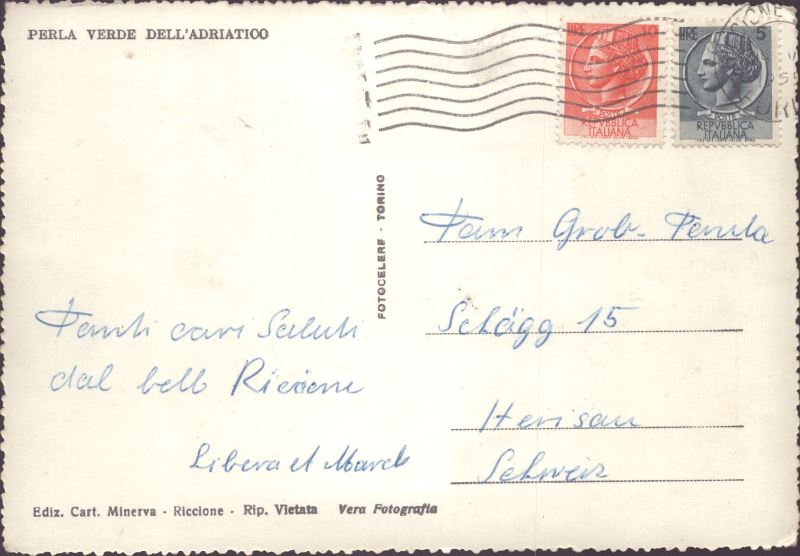 PERLA VERDE DELL'ADRIATICO
LIRE 10
POSTE
REPVBBLICA
ITALIANA
LIRE 5
POSTE
REPVBBLICA
ITALIANA
FOTOCELERE - TORINO
Tanti cari Saluti
dal bello Riccione
Libera et
Fam Grob-
15
Herisau
Schweiz
Ediz. Cart. Minerva - Riccione - Rip. Vietata Vera Fotografia